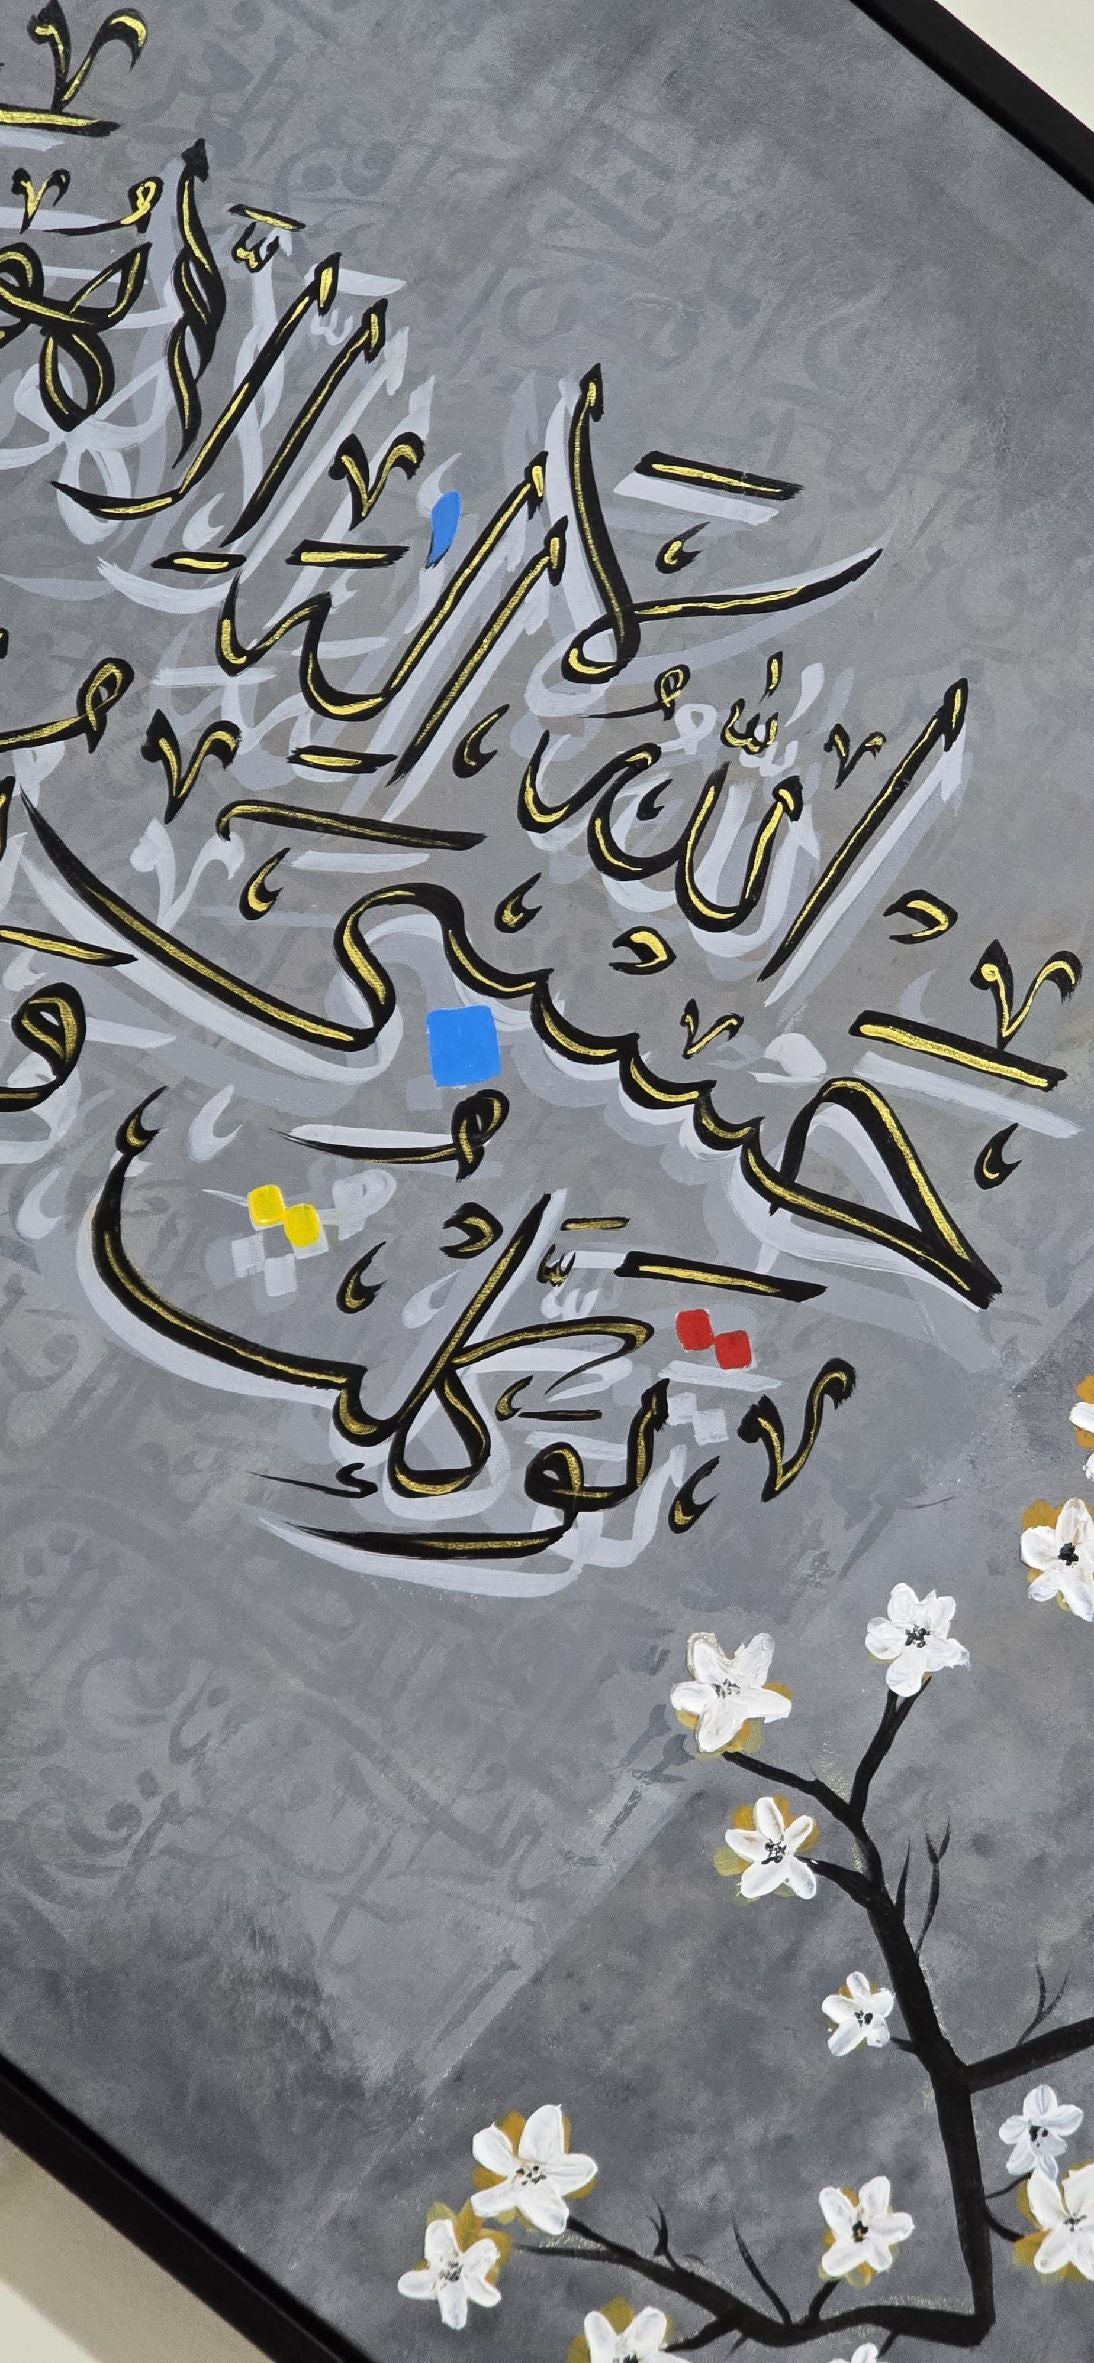 حَسْبِيَ اللّٰهُ لَا إِلَٰهَ إِلَّا هُوَ
تَوَكَّلْتُ